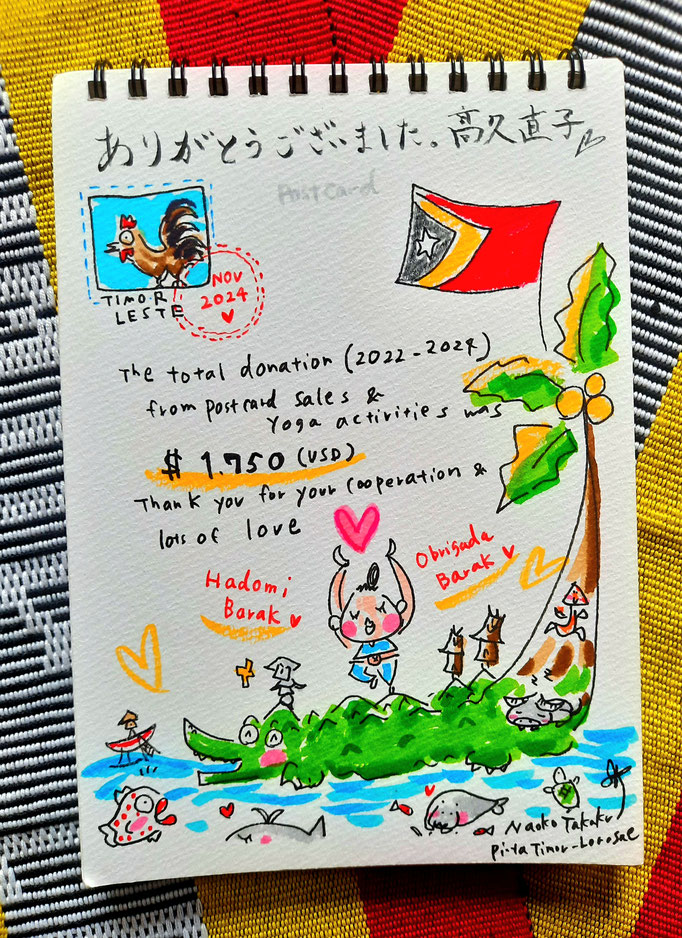 ありがとうございました。髙久直子
Postcard
TIMOR
LESTE
NOV
2024
The total donation (2022-2024)
from postcard sales &
Yoga activities was
$ 1.750 (USD)
Thank you for your cooperation &
lots of love
Hadomi
Barak
Obrigada
Barak
Naoko Takaku
Pi-ta Timor-Lorosae